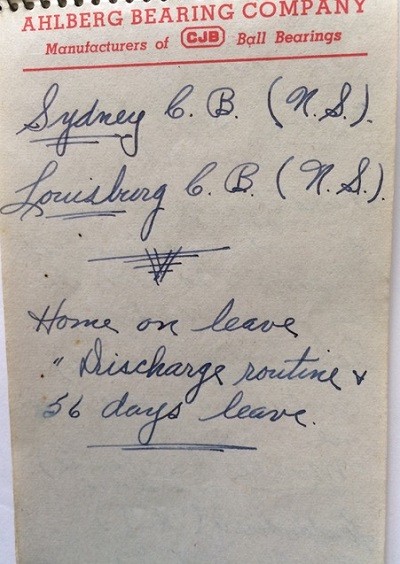 AHLBERG BEARING COMPANY
Manufacturers of CJB Ball Bearings
Sydney C. B. (N. S.).
Louisburg C. B. (N. S.).
Home on leave
" Discharge routine &
56 days leave.